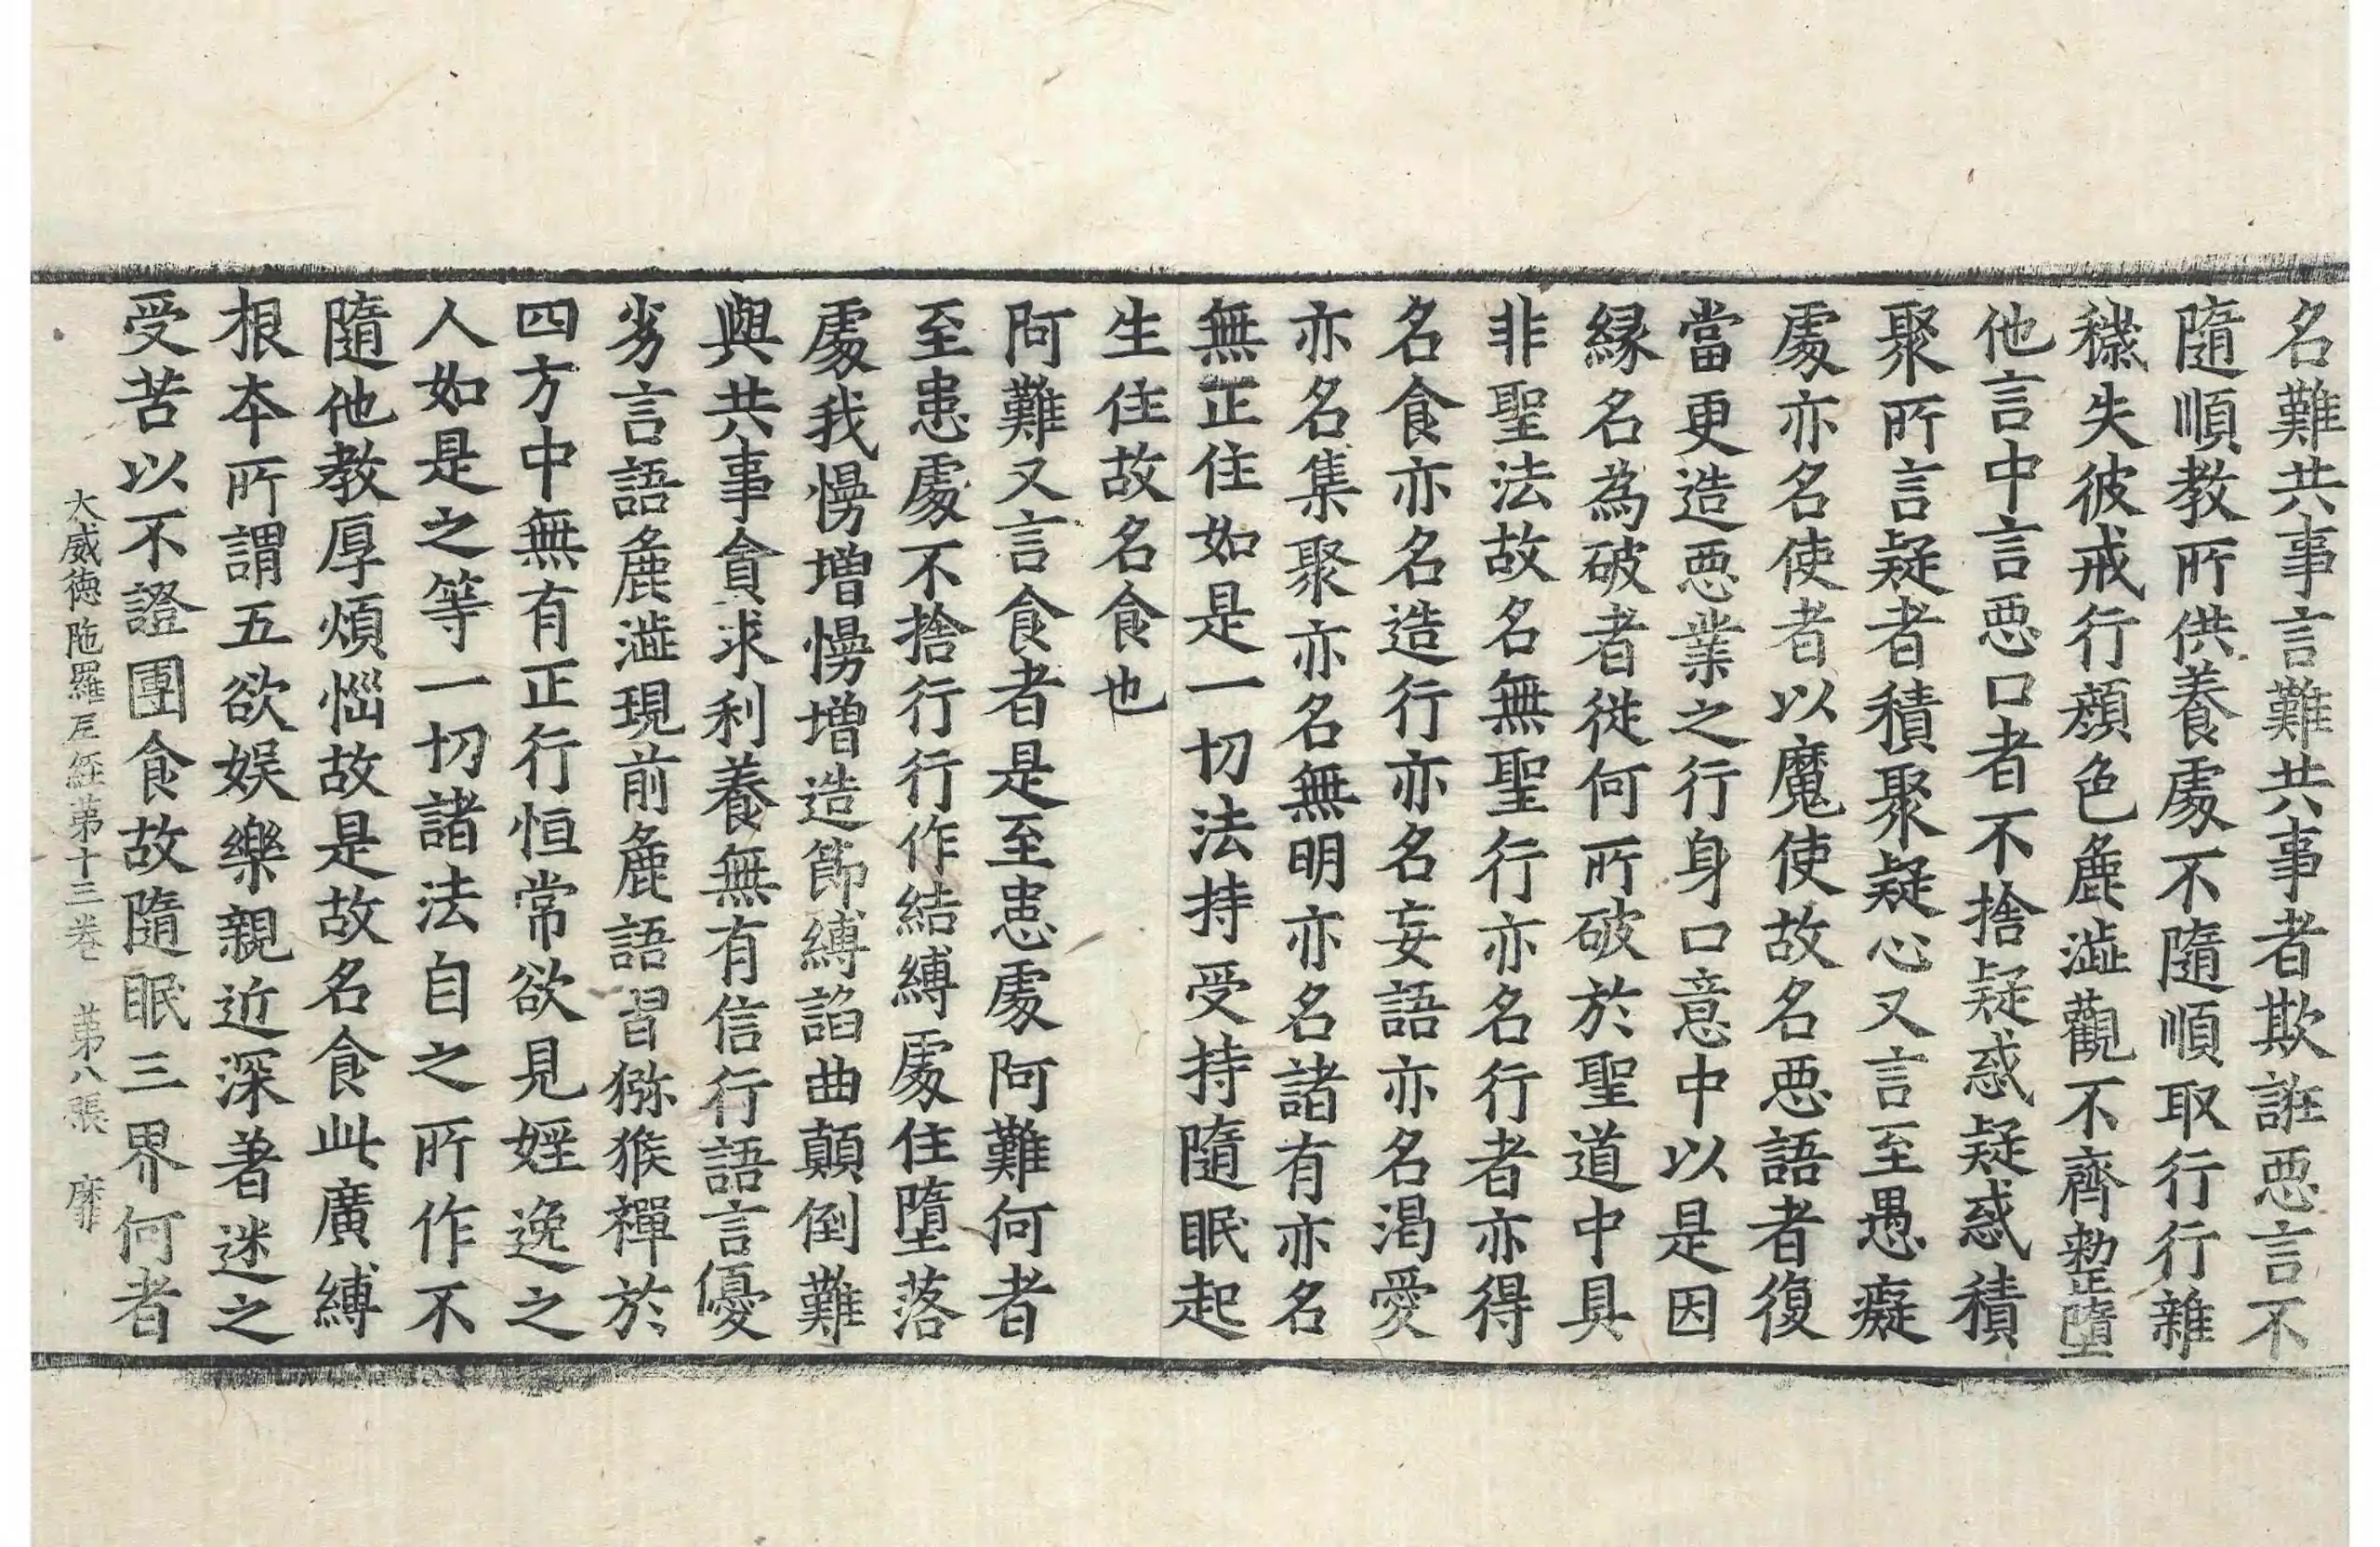 名難共事言難共事者欺誑惡言不
隨順教所供養處不隨順取行行雜
穢失彼戒行顏色麁澁觀不齊整墮
他言中言惡口者不捨疑惑疑惑積
聚所言疑者積聚疑心又言至愚癡
處亦名使者以魔使故名惡語者復
當更造惡業之行身口意中以是因
緣名為破者從何所破於聖道中具
非聖法故名無聖行亦名行者亦得
名食亦名造行亦名妄語亦名渴愛
亦名集聚亦名無明亦名諸有亦名
無正住如是一切法持受持隨眠起
生住故名食也
阿難又言食者是至患處阿難何者
至患處不捨行行作結縛處住墮落
處我慢增慢增造節縛諂曲顛倒難
與共事貪求利養無有信行語言優
劣言語麁澁現前麁語習猕猴禪於
四方中無有正行恒常欲見婬逸之
人如是之等一切諸法自之所作不
隨他教厚煩惱故是故名食此廣縛
根本所謂五欲娛樂親近深著迷之
受苦以不證團食故隨眠三界何者
大威德陁羅尼經第十三卷 第八張 靡